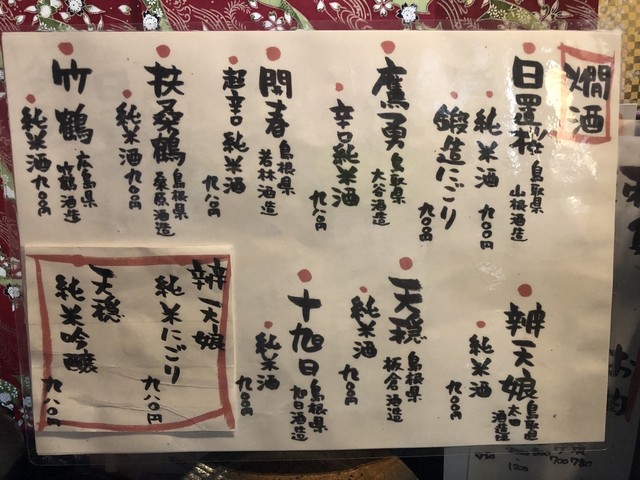 燗酒
日置桜 鳥取県 山根酒造
純米酒 九〇〇円
鍛造にごり 九〇〇円
鷹勇 鳥取県 大谷酒造
辛口純米酒 九八〇円
開春 島根県 若林酒造
超辛口純米酒 九八〇円
扶桑鶴 島根県 桑原酒造
純米酒 九〇〇円
竹鶴 広島県 竹鶴酒造
純米酒 九〇〇円
辨天娘 鳥取県 太田酒造
純米酒 九〇〇円
天穏 島根県 板倉酒造
純米酒 九〇〇円
十旭日 島根県 旭日酒造
純米酒 九〇〇円
辨天娘
純米にごり 九八〇円
天穏
純米吟醸 九八〇円